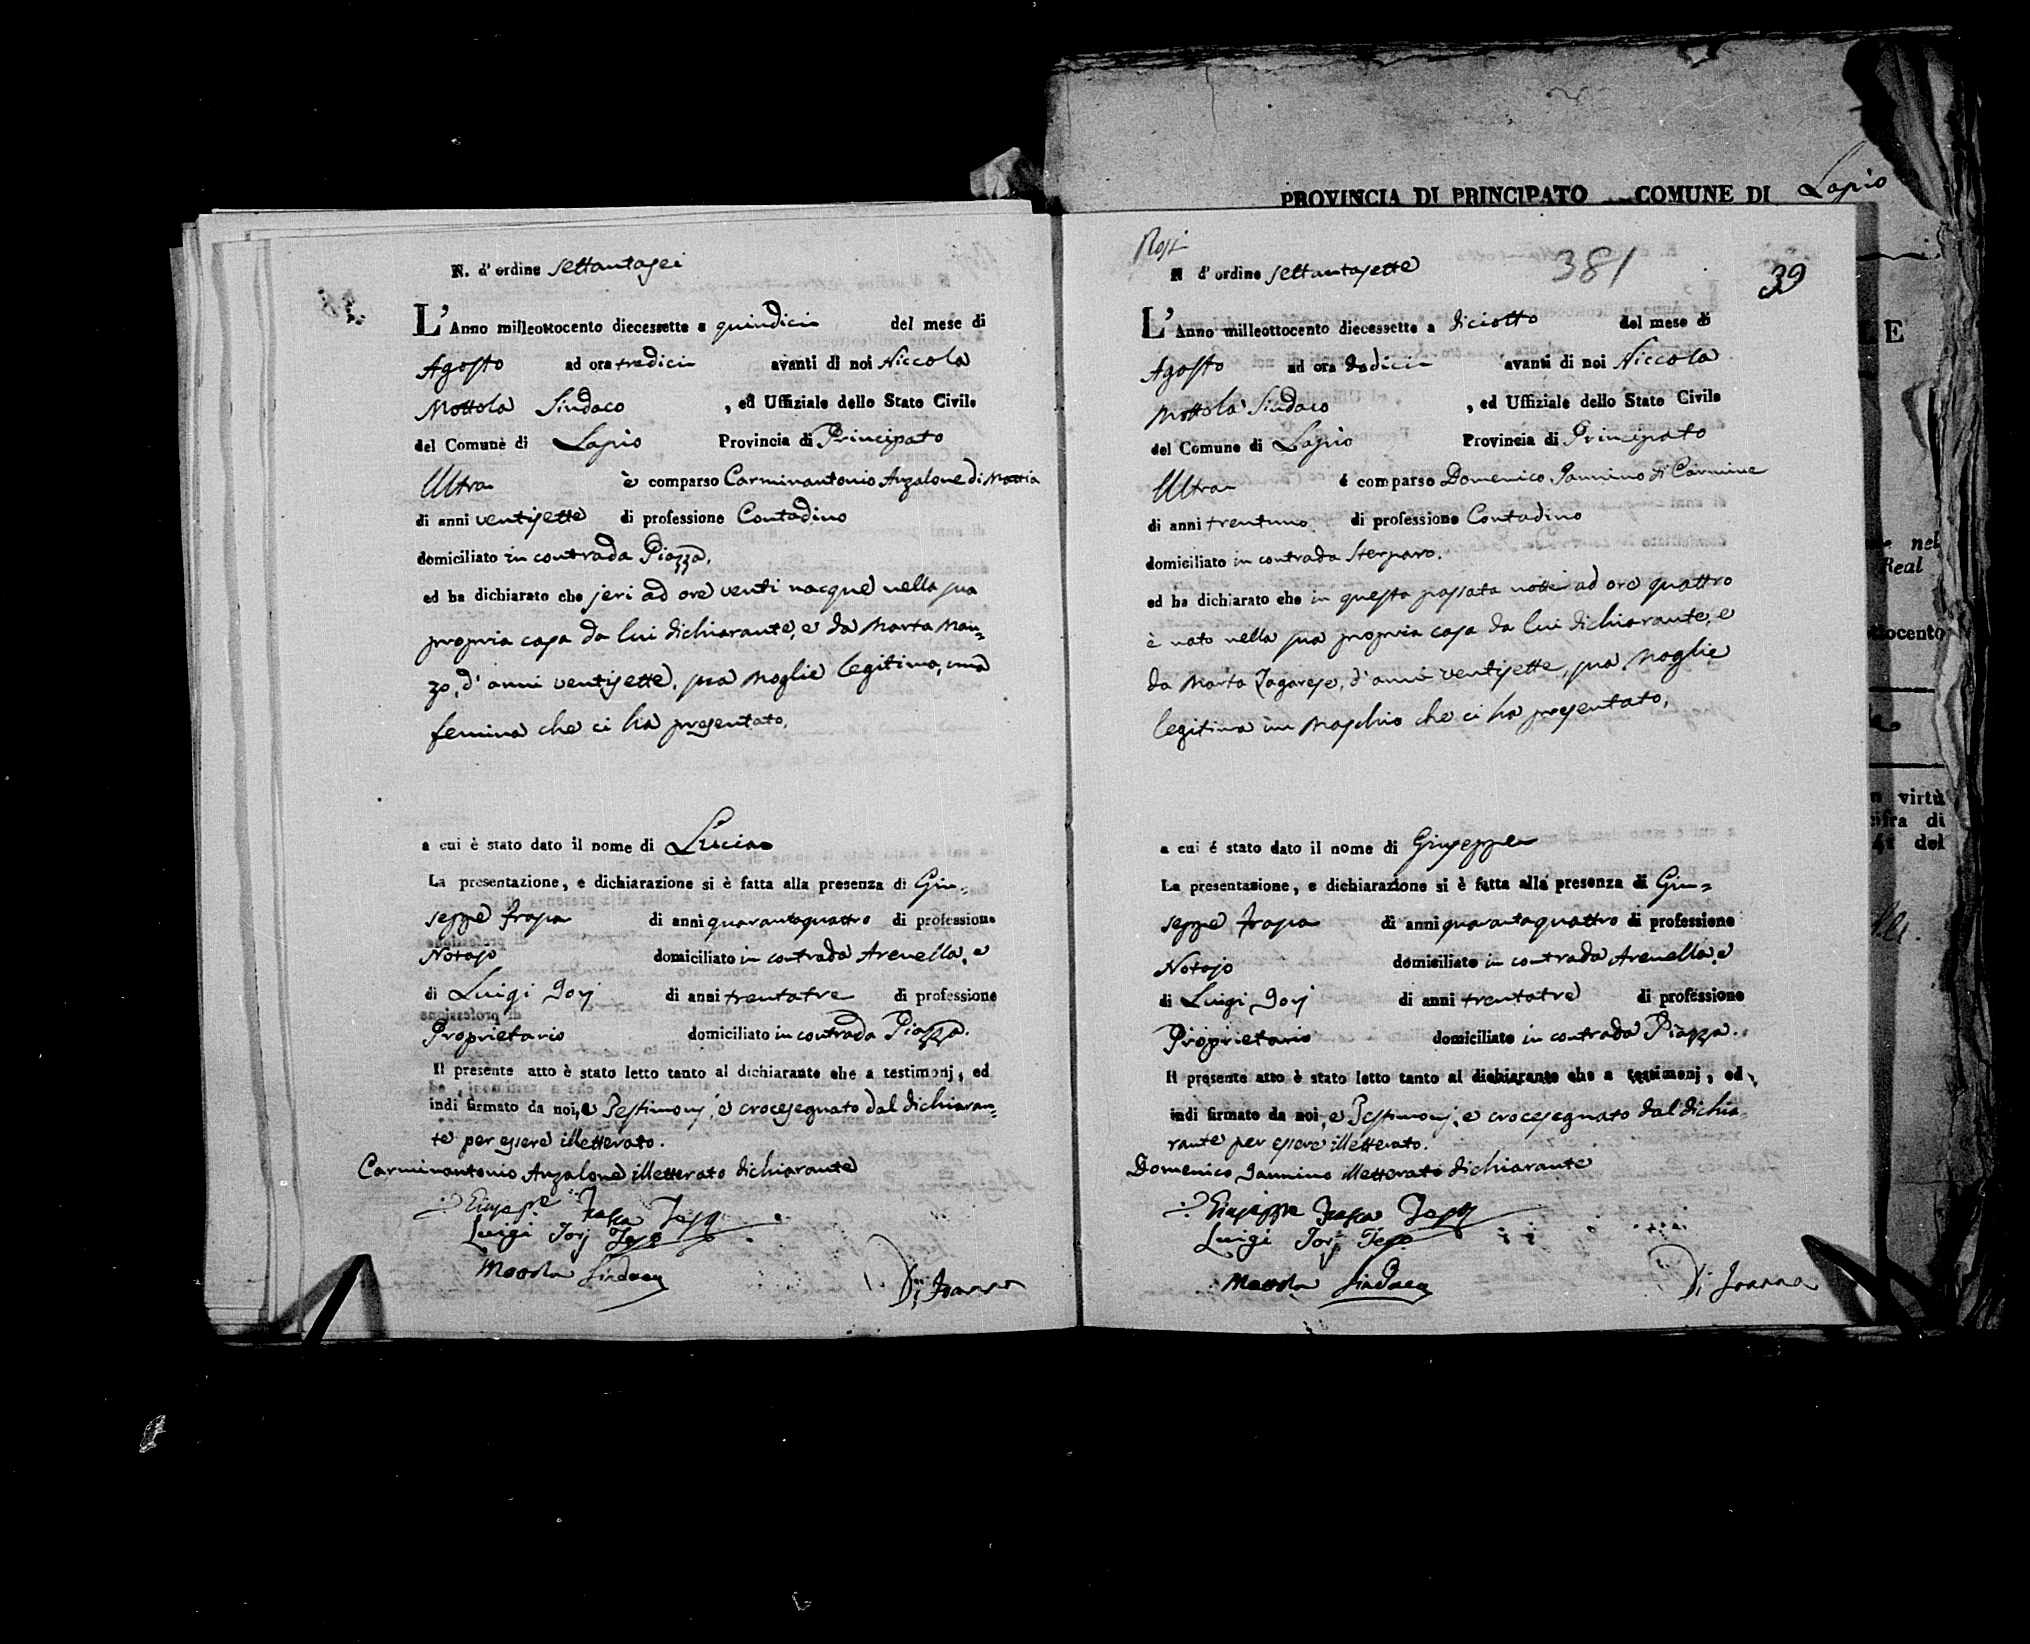 PROVINCIA DI PRINCIPATO COMUNE DI Lapio
N. d'ordine settantasei
L'Anno milleottocento diecessette a quindici del mese di
Agosto ad ora tredici avanti di noi Niccola
Mottola Sindaco , ed Uffiziale dello Stato Civile
del Comune di Lapio Provincia di Principato
Ultra è comparso Carminantonio Anzalone di Mattia
di anni ventisette di professione Contadino
domiciliato in contrada Piazza.
ed ha dichiarato che jeri ad ore venti nacque nella sua
propria casa da lui dichiarante, e da Marta Man=
zo, d'anni ventisette, sua Moglie legitima, una
femina che ci ha presentato.
a cui è stato dato il nome di Lucia
La presentazione, e dichiarazione si è fatta alla presenza di Giu=
seppe Frapa di anni quarantaquattro di professione
Notajo domiciliato in contrada Arenella, e
di Luigi Jorj di anni trentatre di professione
Proprietario domiciliato in contrada Piazza.
Il presente atto è stato letto tanto al dichiarante che a testimonj, ed
indi firmato da noi, e Testimonj, e crocesegnato dal dichiaran=
te per essere illetterato.
Carminantonio Anzalone illetterato dichiarante
Giuseppe
Luigi Jorj
Mottola Sindaco
N d'ordine settantasette
381
39
L'Anno milleottocento diecessette a diciotto del mese di
Agosto ad ora dodici avanti di noi Niccola
Mottola Sindaco , ed Uffiziale dello Stato Civile
del Comune di Lapio Provincia di Principato
Ultra é comparso Domenico Jannino di Carmine
di anni trentuno di professione Contadino
domiciliato in contrada Sterparo.
ed ha dichiarato che in questa passata notte ad ore quattro
è nato nella sua propria casa da lui dichiarante, e
da Marta Zagarese, d'anni ventisette, sua Moglie
legitima un Maschio che ci ha presentato.
a cui é stato dato il nome di Giuseppe
La presentazione, e dichiarazione si è fatta alla presenza di Giu=
seppe Frapa di anni quarantaquattro di professione
Notajo domiciliato in contrada Arenella, e
di Luigi Jorj di anni trentatre di professione
Proprietario domiciliato in contrada Piazza.
Il presente atto è stato letto tanto al dichiarante che a testimonj, ed
indi firmato da noi, e Testimonj, e crocesegnato dal dichia=
rante per essere illetterato.
Domenico Jannino illetterato dichiarante
Giuseppe
Luigi Jorj
Mottola Sindaco
E
nel
Real
ttocento
virtù
cifra di
del